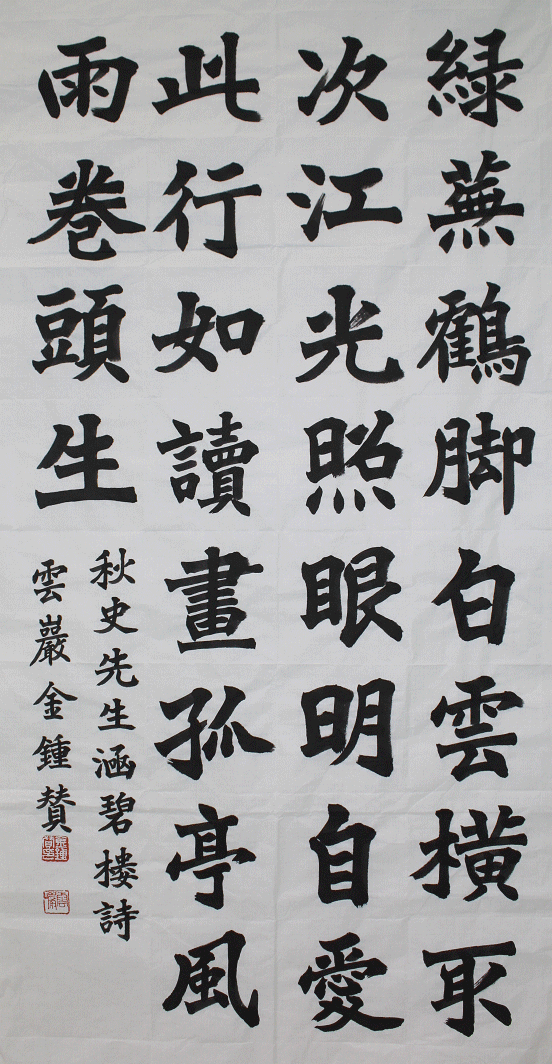 綠蕪鶴脚白雲橫取
次江光照眼明自愛
此行如讀畫孤亭風
雨卷頭生
秋史先生涵碧樓詩
雲巖金鍾贊